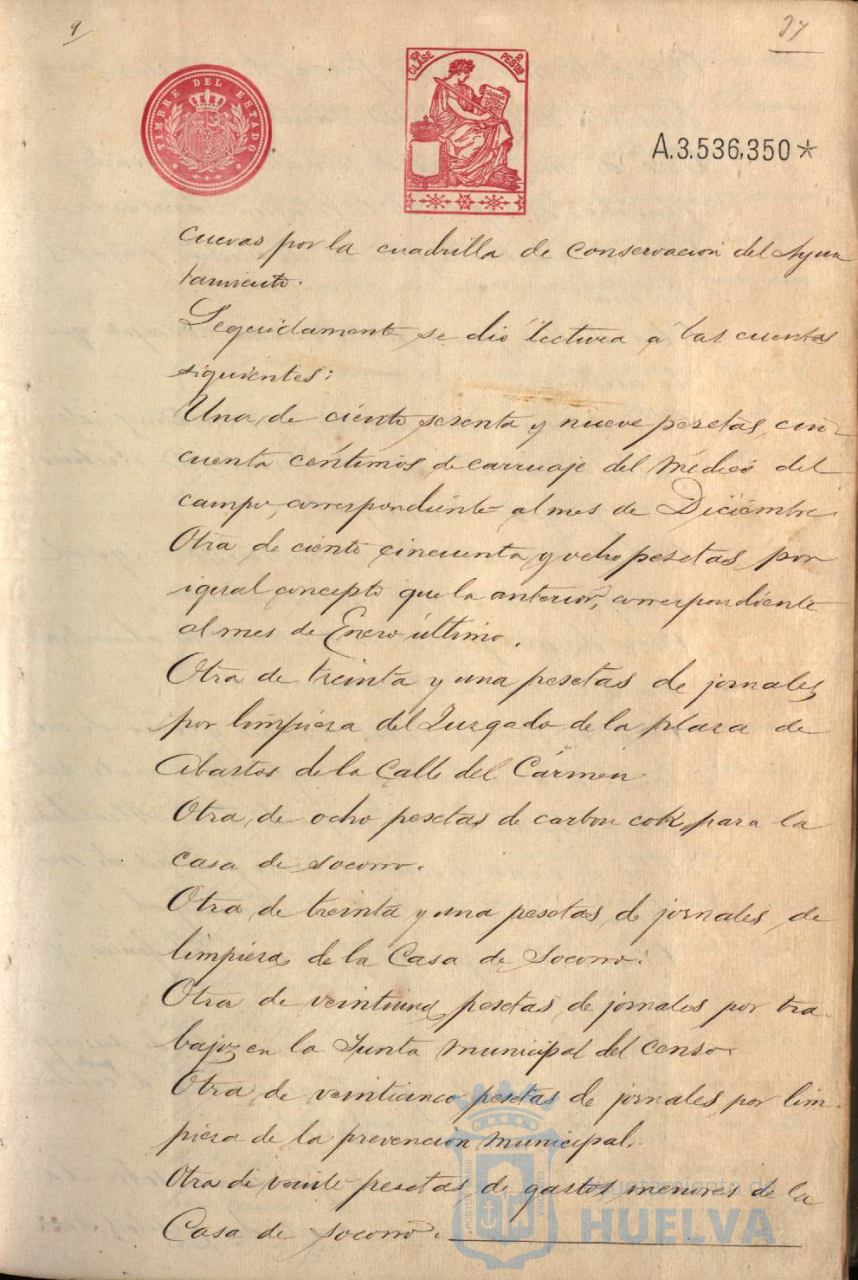 9
37
TIMBRE DEL ESTADO
CLASE 2 PESETAS
A.3.536,350*
cuevas por la cuadrilla de conservacion del Ayun
tamiento.
Seguidamente se dio lectura á las cuentas
siguientes:
Una de ciento sesenta y nueve pesetas cin-
cuenta centimos de carruaje del Médico del
campo, correspondiente al mes de Diciembre.
Otra de ciento cincuenta y ocho pesetas por
igual concepto que la anterior, correspondiente
al mes de Enero último.
Otra de treinta y una pesetas de jornales
por limpieza del Juzgado de la plaza de
Abastos de la Calle del Cármen
Otra de ocho pesetas de carbon cok para la
casa de socorro.
Otra de treinta y una pesetas de jornales de
limpieza de la Casa de Socorro.
Otra de veintiuna pesetas de jornales por tra-
bajos en la Junta municipal del censo.
Otra de veinticinco pesetas de jornales por lim-
pieza de la prevencion municipal.
Otra de veinte pesetas de gastos menores de la
Casa de socorro.
Ayuntamiento de
HUELVA